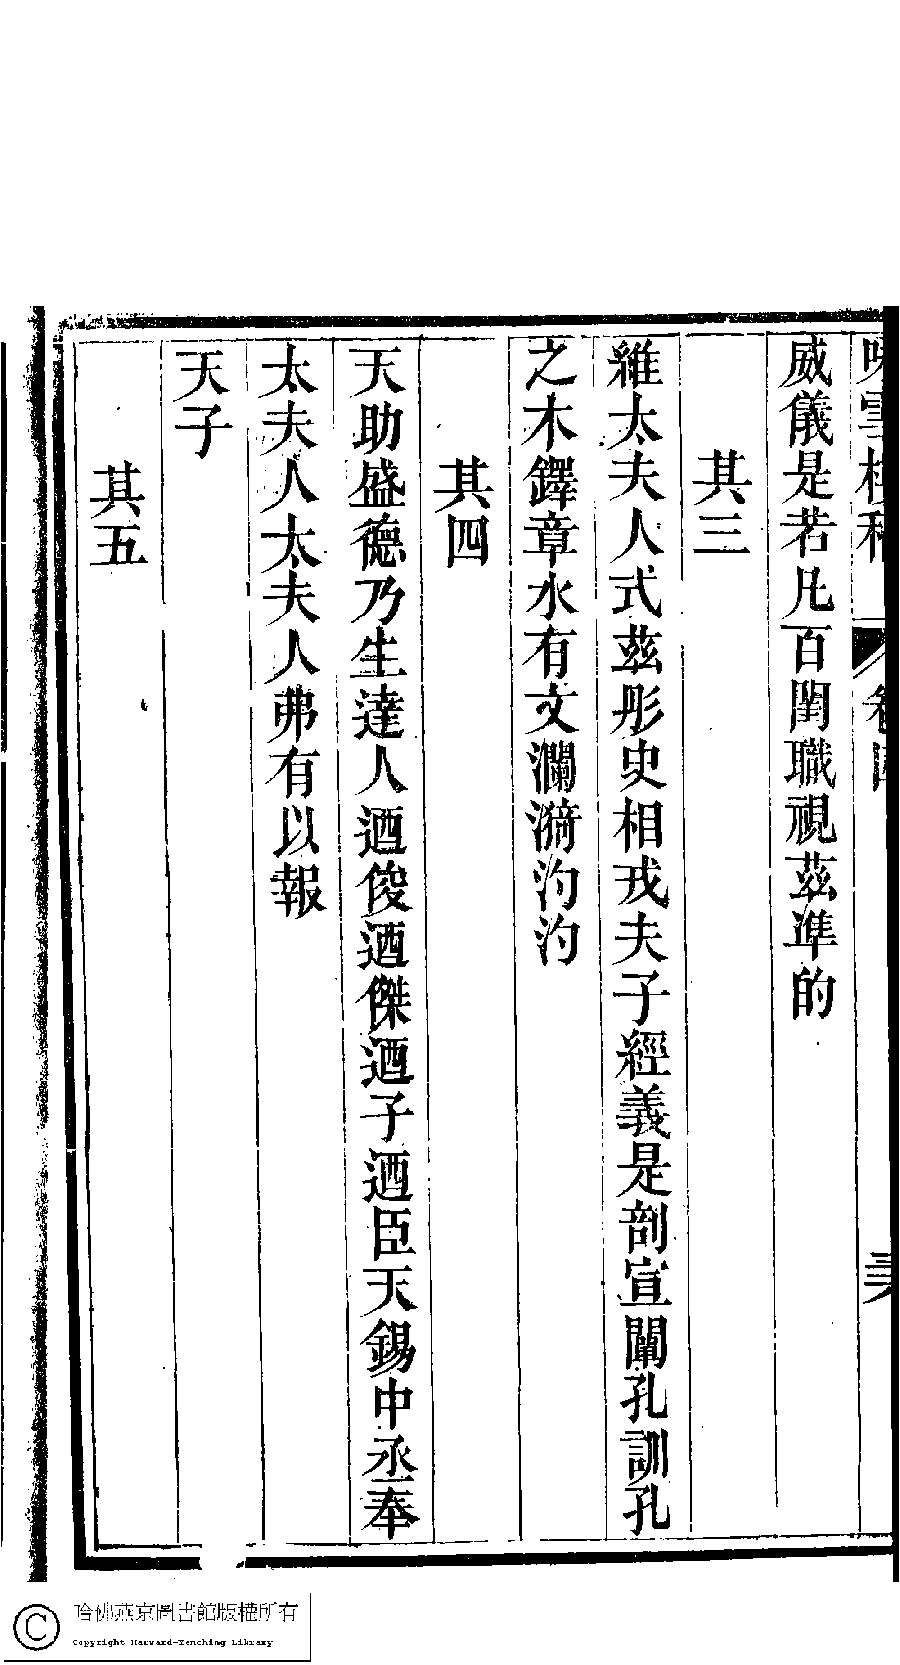 威儀是若凡百閨職視茲準的
其三
維太夫人式茲彤史相戎夫子經義是剖宣闡孔訓孔
之木鐸章水有文瀾漪汋汋
其四
天助盛德乃生達人迺俊迺傑迺子迺臣天錫中丞奉
太夫人太夫人弗有以報
天子
其五
哈佛燕京圖書館版權所有
Copyright Harvard-Yenching Library